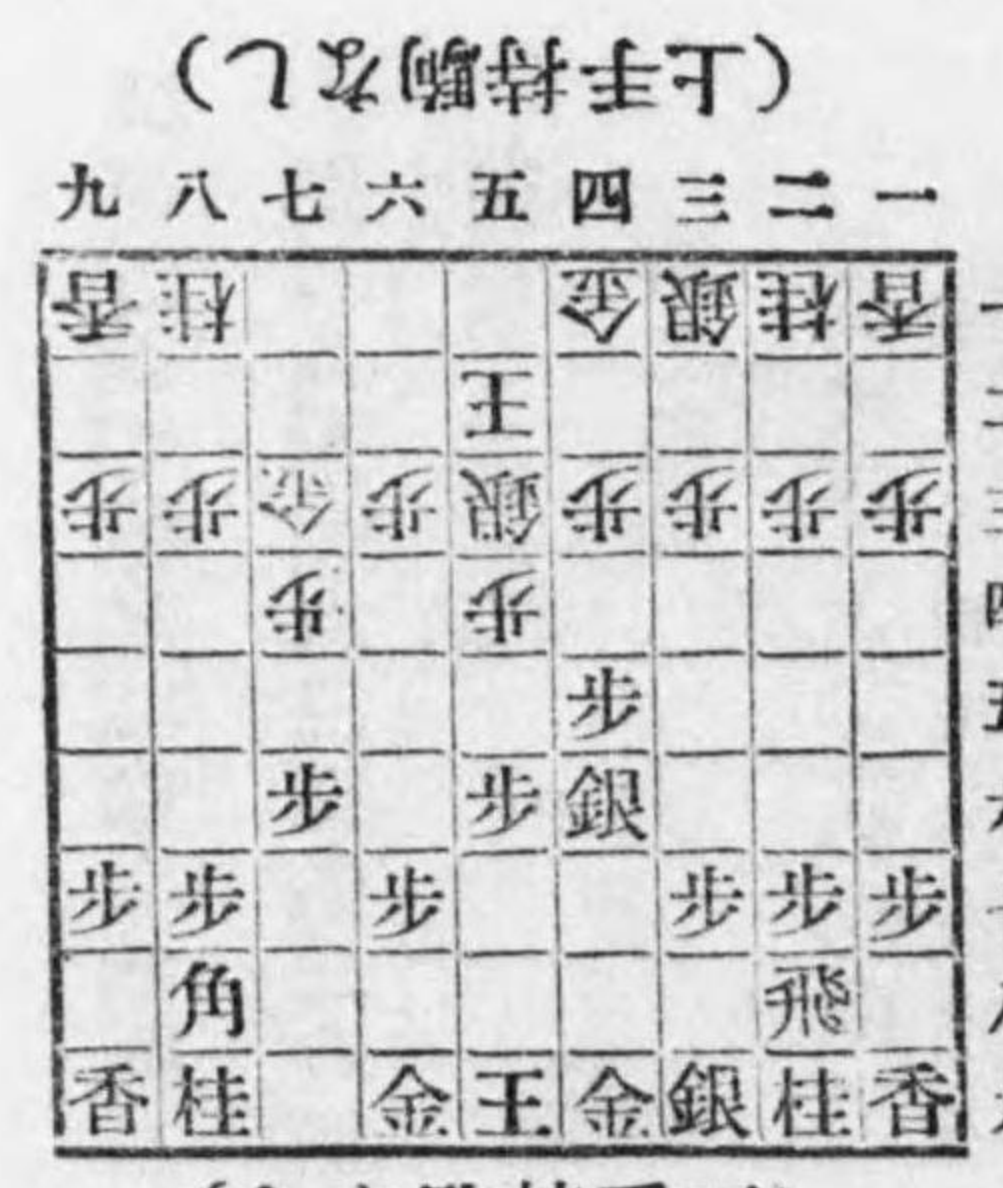 (上手持駒なし)
九 八 七 六 五 四 三 二 一
香 桂 金 銀 桂 香 一
王 二
歩 歩 金 歩 銀 歩 歩 歩 歩 三
歩 歩 四
歩 五
歩 歩 銀 六
歩 歩 歩 歩 歩 歩
角 飛
香 桂 金 王 金 銀 桂 香